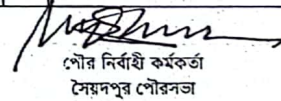 পৌর নির্বাহী কর্মকর্তা
সৈয়দপুর পৌরসভা